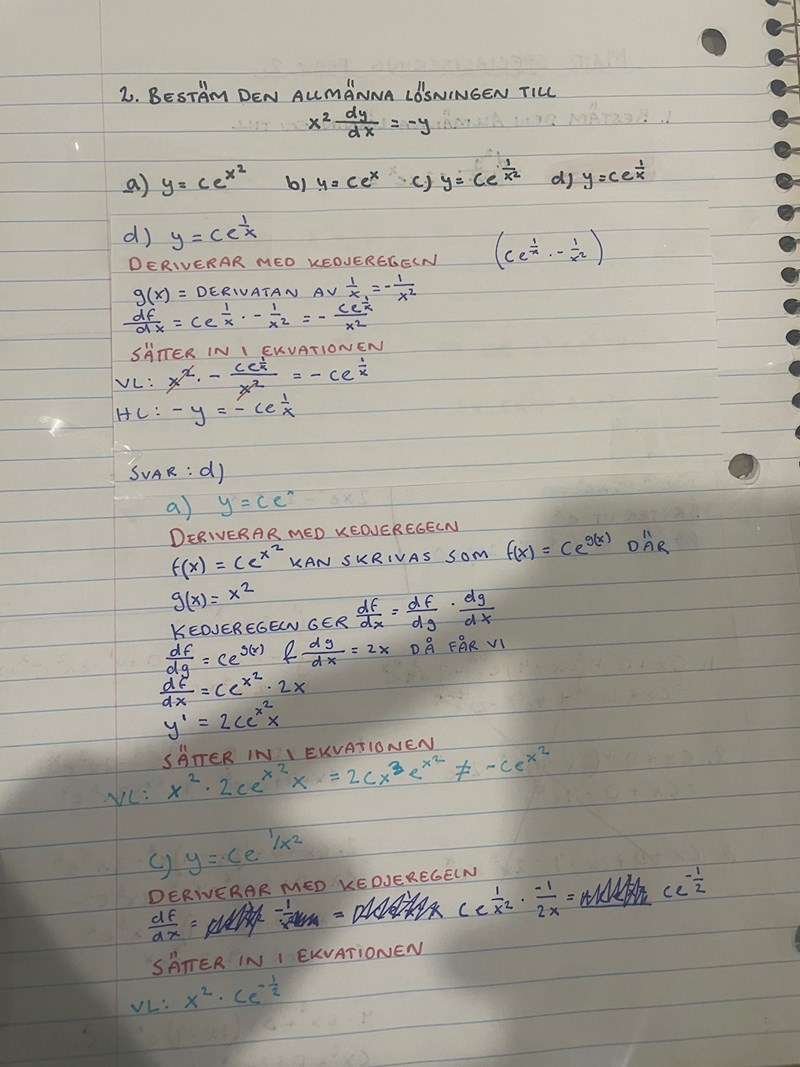 2. BESTÄM DEN ALLMÄNNA LÖSNINGEN TILL
x² dy/dx = -y
a) y = ce^x² b) y = ce^x c) y = ce^1/x² d) y = ce^1/x
d) y = ce^1/x
DERIVERAR MED KEDJEREGELN (ce^1/x · - 1/x²)
g(x) = DERIVATAN AV 1/x = - 1/x²
df/dx = ce^1/x · - 1/x² = - ce^1/x / x²
SÄTTER IN I EKVATIONEN
VL: x² · - ce^1/x / x² = - ce^1/x
HL: - y = - ce^1/x
SVAR: d)
a) y = ce
DERIVERAR MED KEDJEREGELN
f(x) = ce^x² KAN SKRIVAS SOM f(x) = ce^g(x) DÄR
g(x) = x²
KEDJEREGELN GER df/dx = df/dg · dg/dx
df/dg = ce^g(x) & dg/dx = 2x DÅ FÅR VI
df/dx = ce^x² · 2x
y' = 2ce^x² x
SÄTTER IN I EKVATIONEN
VL: x² · 2ce^x² x = 2cx³e^x² ≠ -ce^x²
c) y = ce^1/x²
DERIVERAR MED KEDJEREGELN
df/dx = = ce^1/x² · -1/2x = ce^-1/2
SÄTTER IN I EKVATIONEN
VL: x² · ce^-1/2